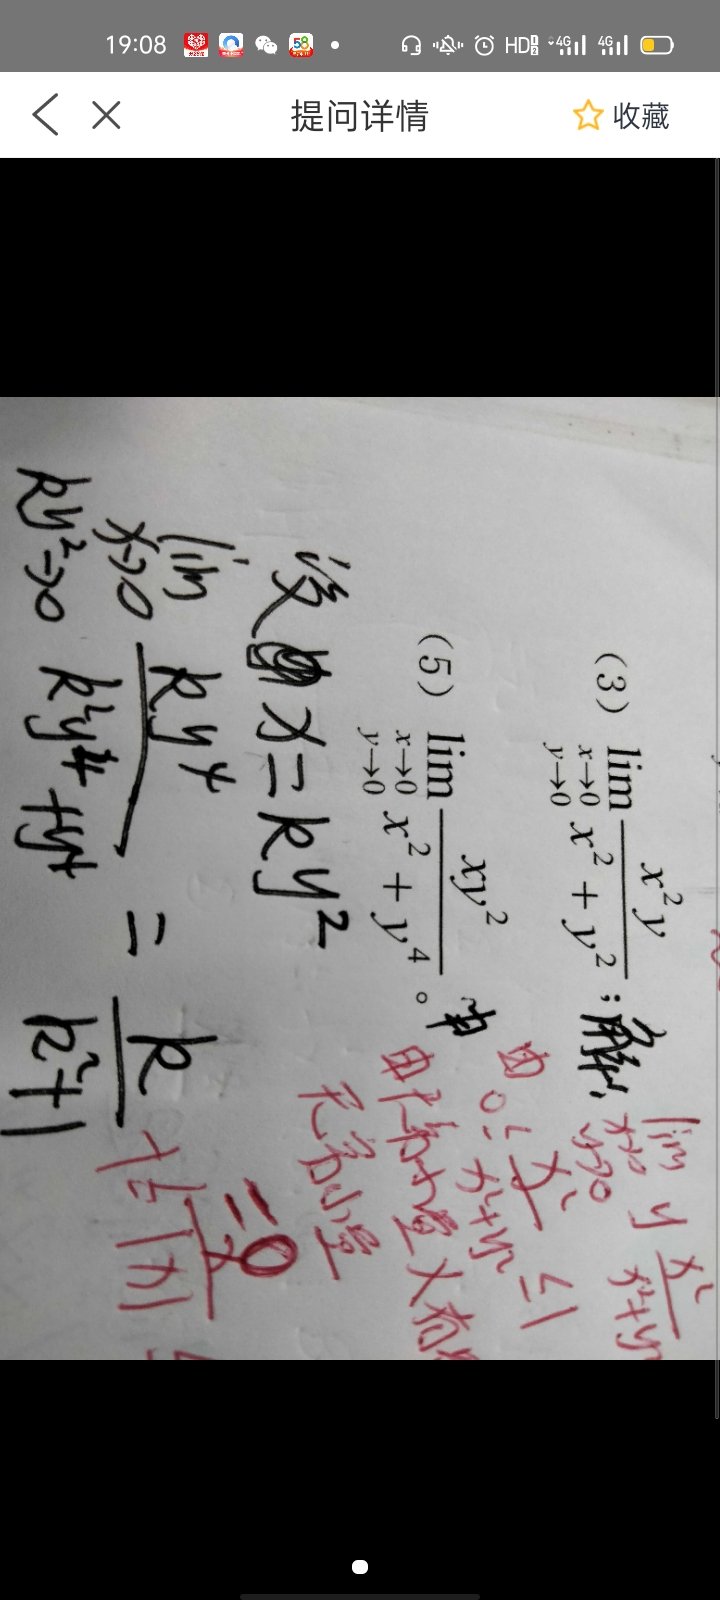 19:08
HD 4G 4G
提问详情
收藏
(3) lim x→0 y→0 x²y / x² + y² ; 解:
lim x→0 y→0 y x² / x²+y²
由 0 ≤ x² / x²+y² ≤ 1
(5) lim x→0 y→0 xy² / x² + y⁴ 。
由无穷小量 × 有
无穷小量
= 0
设 x = ky²
lim x→0 ky²→0 ky⁴ / k²y⁴ + y⁴ = k / k²+1